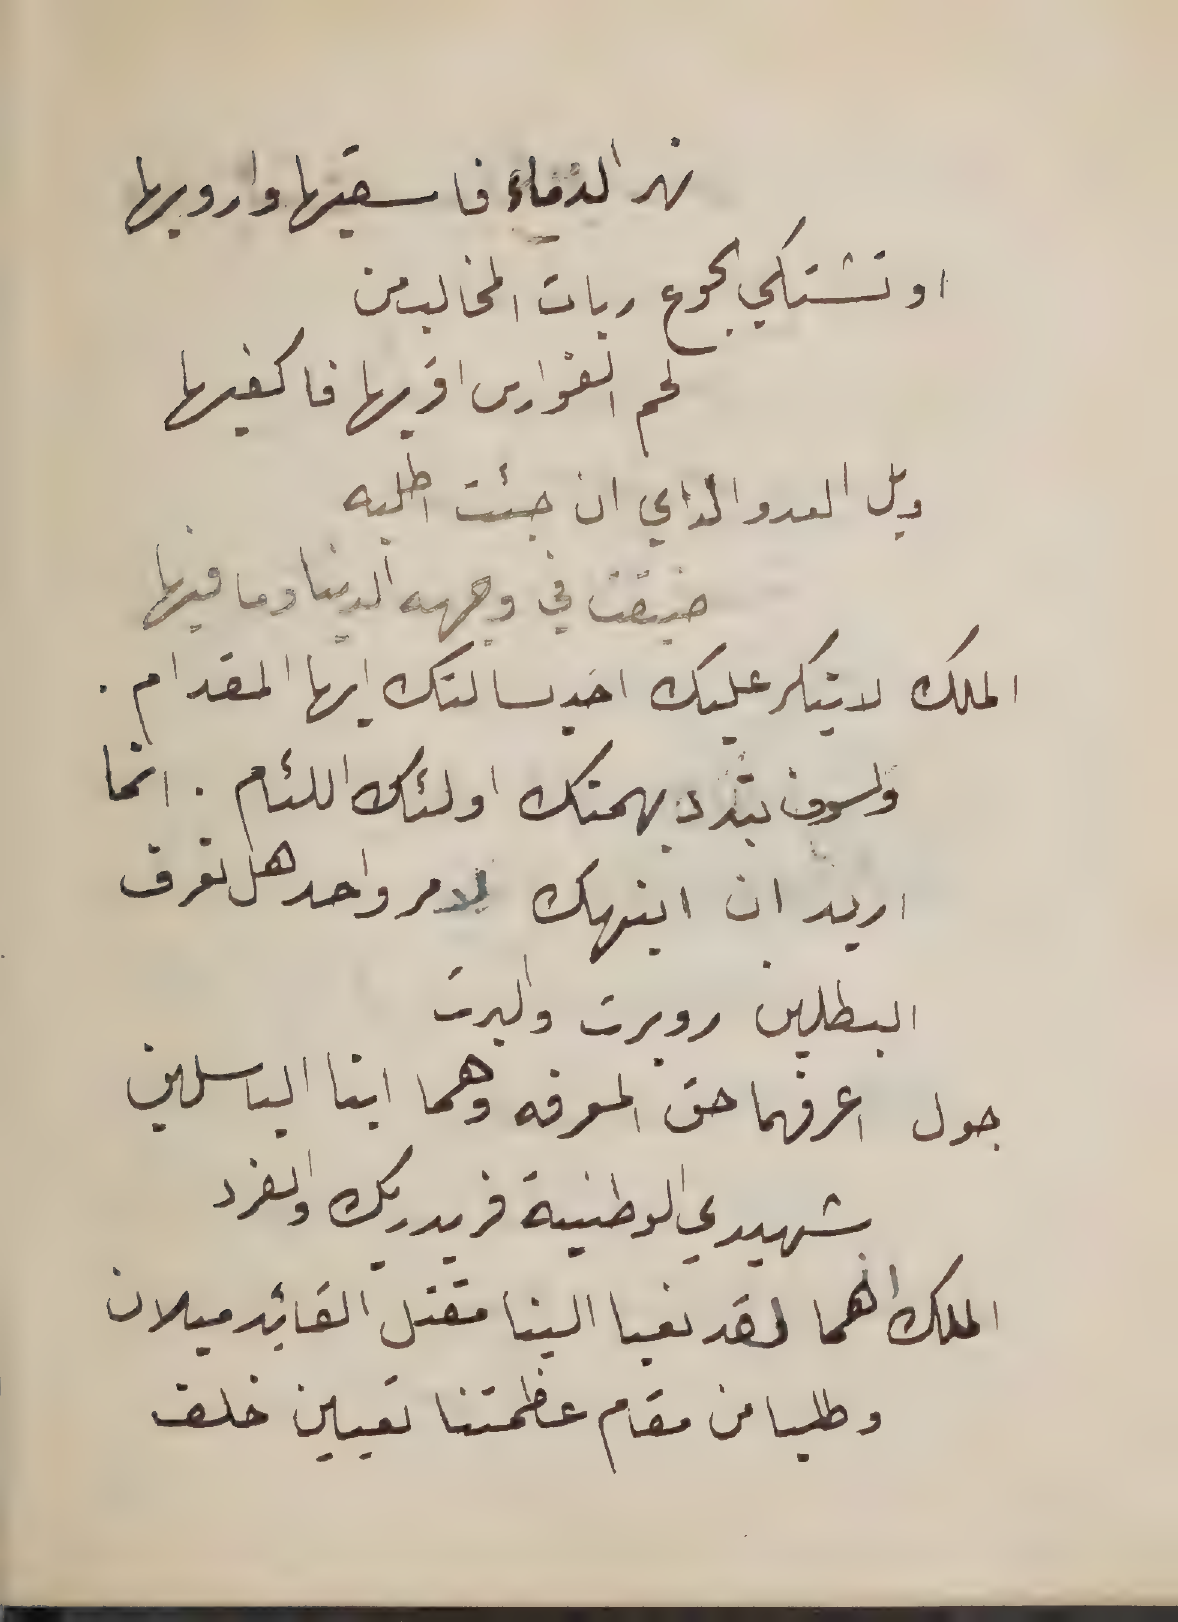 نهر الدماء فاسقيها وارويها
او تشتكي الجوع ربات المخالب من
لحم الفوارس اقريها فاكفيها
ويل العدو الذي ان جئت اطلبه
ضيقت في وجهه الدنيا وما فيها
الملك لا ينكر عليك احد بسالتك ايها المقدام .
ولسوف يندد بهمتك اولئك اللئام . انما
اريد ان انبهك لامر واحد هل تعرف
البطلين روبرت والبرت
جول اعرفهما حق المعرفه وهما ابنا الباسلين
شهيدي الوطنية فريدريك والفرد
الملك انهما لقد نعيا الينا مقتل القائد ميلان
وطلبا من مقام عظمتنا تعيين خلف